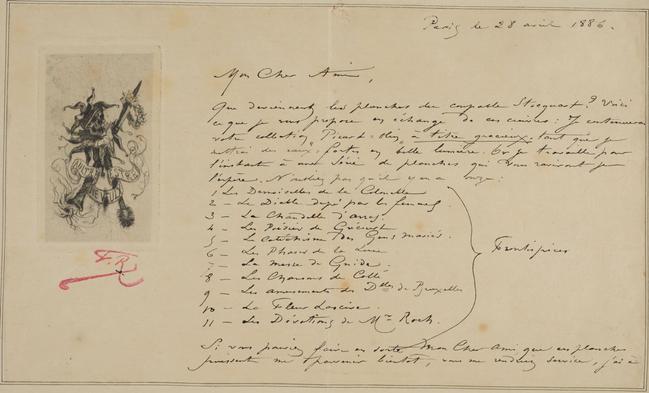 Paris le 28 avril 1886.
Mon Cher Ami,
Que deviennent les planches du coupable Stocquart? Voici
ce que je vous propose en échange de ces cuivres: Je continuerai
votre collection à titre gracieux tant que je
en belle lumière. Je travaille pour
l'instant à une Série de planches qui vous raviront je
l'espère. N'oubliez pas qu'il y en a onze:
1 Les Demoiselles de la
2 — Le Diable dupé par les femmes
3 — La Chandelle d'Arras
4 — Les
5 — Le Catéchisme des Gens mariés.
6 — Les Phases de la Lune
7 — La Messe de Gnide
8 — Les Chansons de Collé
9 — Les amusements des Dlles de Bruxelles
10 — La Fleur Lascive
11 — Les Dévotions de Mme Roch.
Frontispices
Si vous pouviez faire en sorte Mon Cher Ami que ces planches
puissent me parvenir bientôt, vous me rendriez service, j'ai à
F.R.